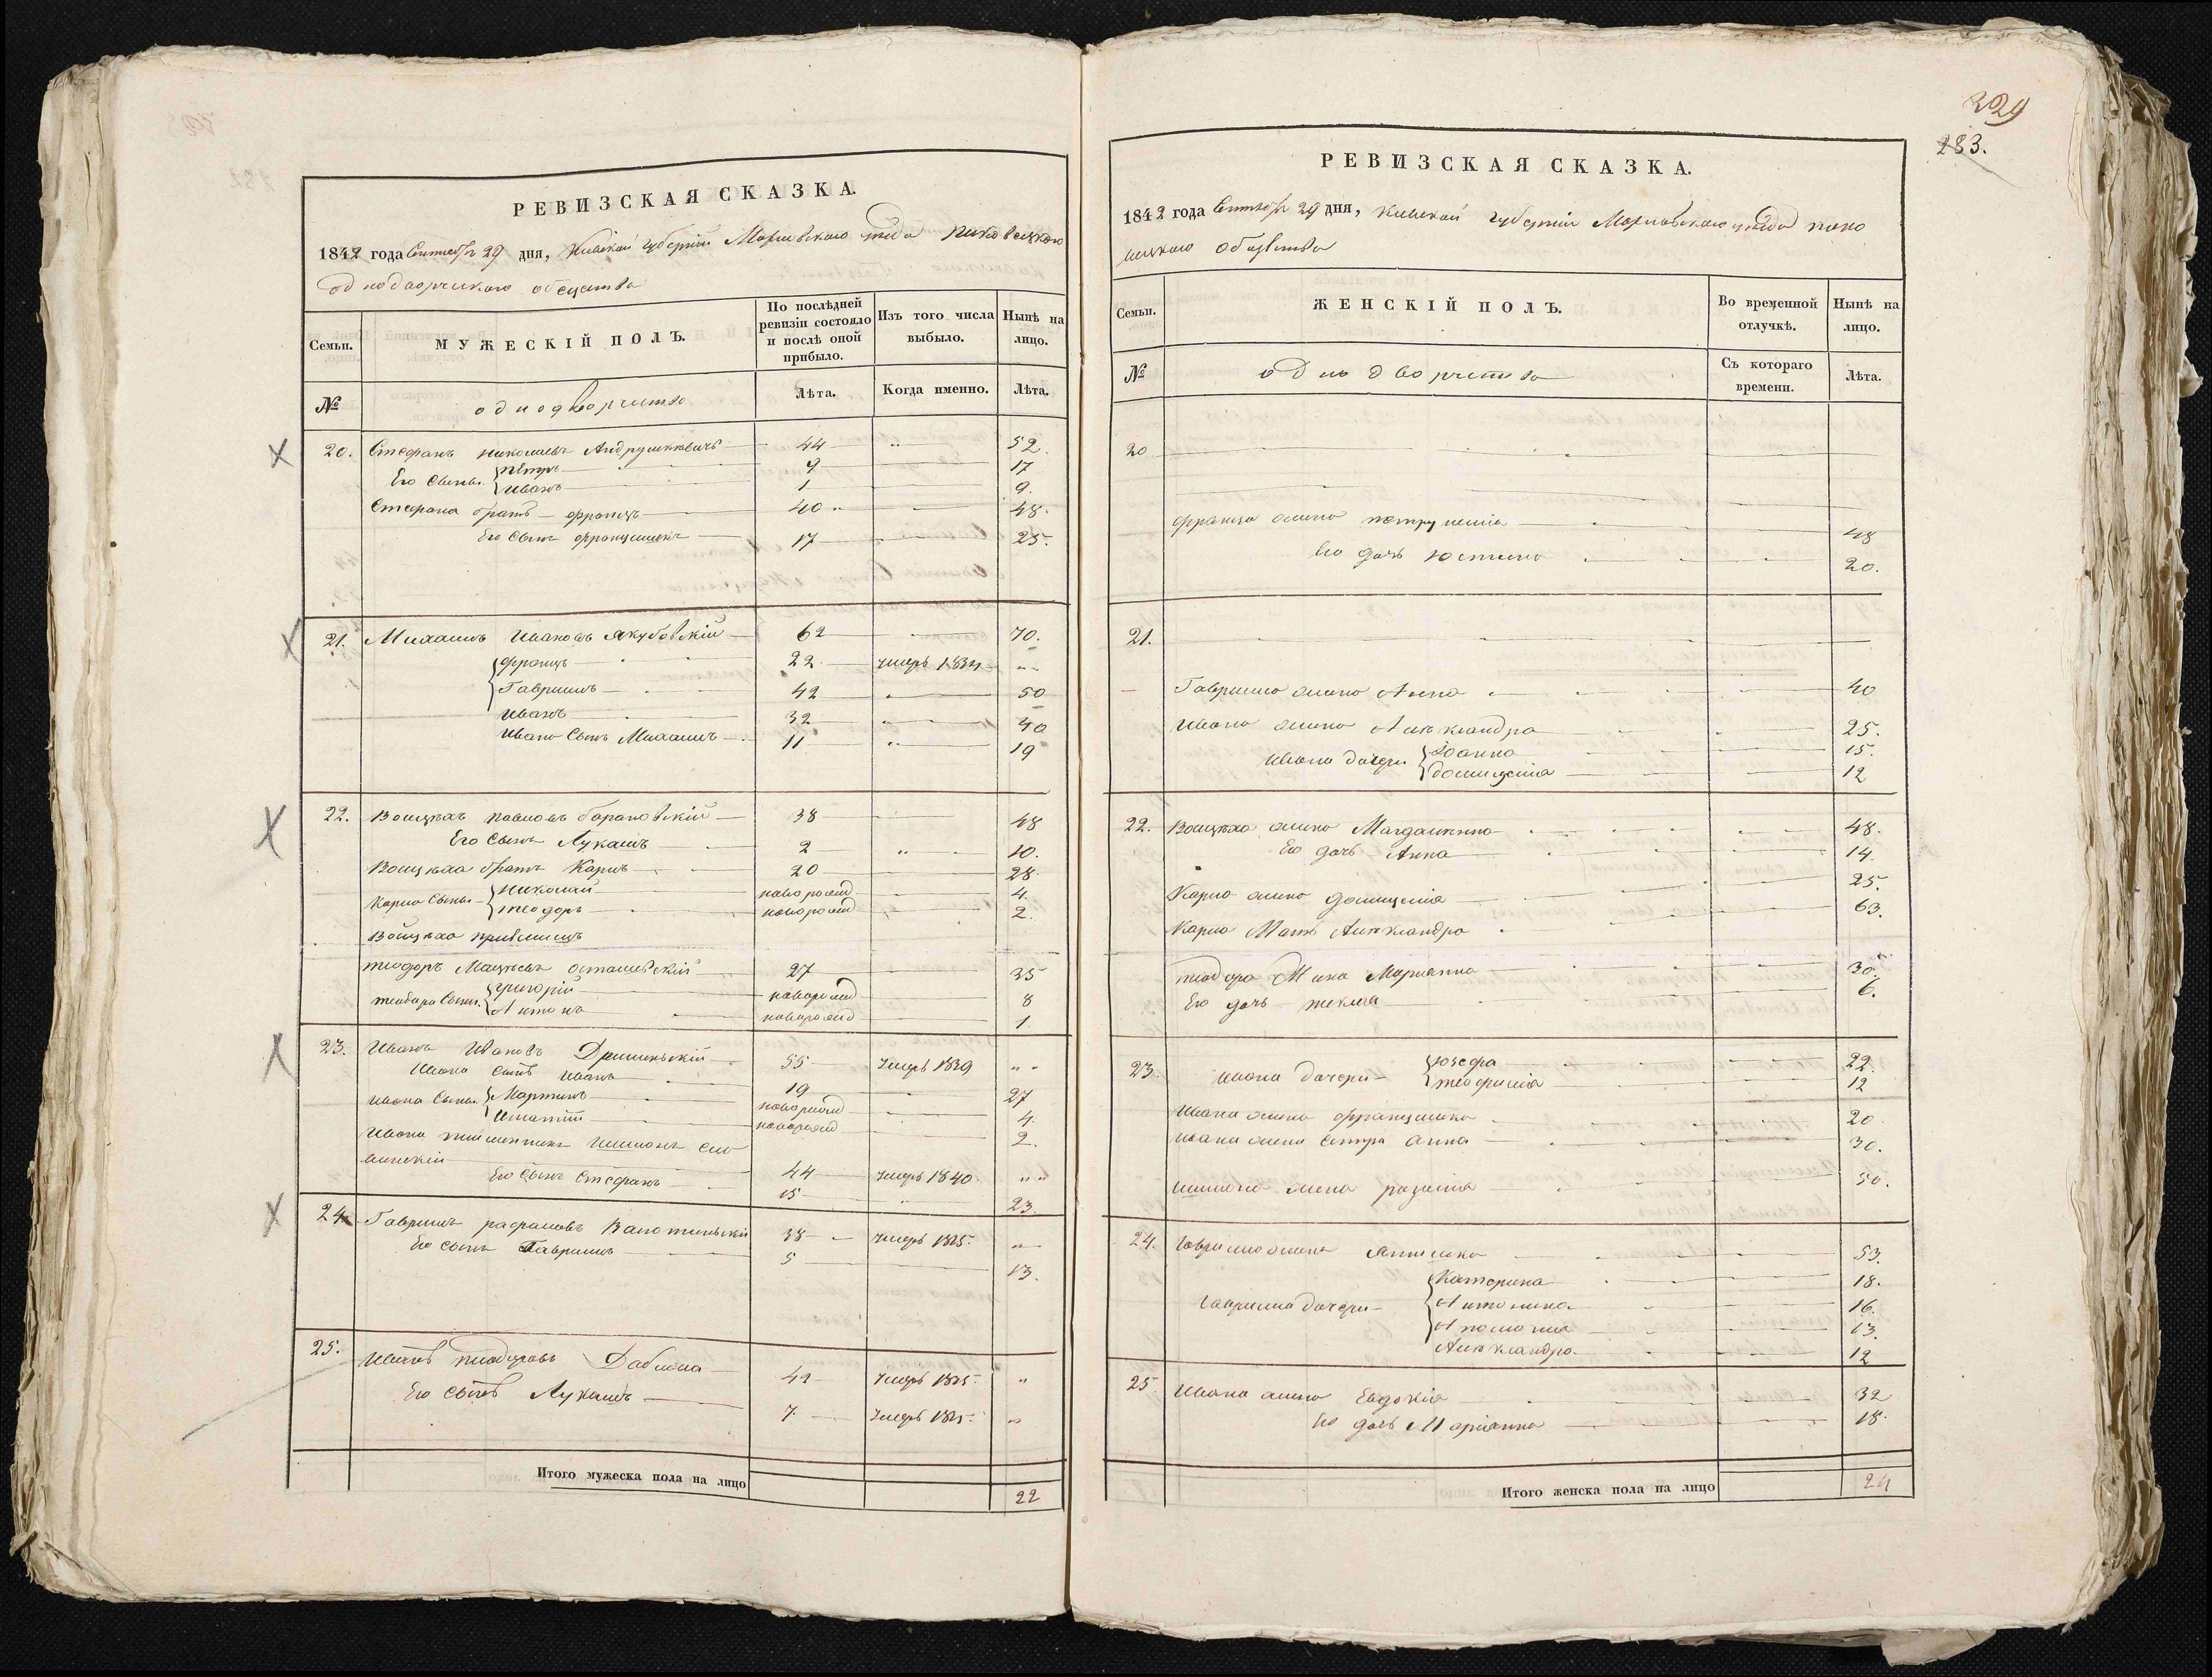 229
283.
РЕВИЗСКАЯ СКАЗКА.
1842 года Сентябр 29 дня, Киевской губерніи Махновского уезда
однодворческого общества
Семьи.
МУЖЕСКІЙ ПОЛЪ.
По послѣдней ревизіи состояло и послѣ оной прибыло.
Изъ того числа выбыло.
Нынѣ на лицо.
№
однодворческо
Лѣта.
Когда именно.
Лѣта.
20. Стефанъ Николаевъ Андрушкевичъ 44 " 52.
Его Сыны. Петръ 9 17
Иванъ 1 9.
Стефана братъ Францъ 40 " 48.
Его Сынъ Францишекъ 17 25.
21. Михаилъ Ивановъ Якубовскій 62 70.
Францъ 22 умеръ 1834 " "
Гавриилъ 42 " 50
Иванъ 32 " 40
Ивана Сынъ Михаилъ 11 " 19
22. Войцехъ Павловъ Барановскій 38 48
Его Сынъ Лукашъ 2 " 10.
Войцеха братъ Карлъ 20 28.
Карла Сыны Николай новорожд 4.
Теодоръ новорожд 2.
Войцеха
Теодоръ Мацеевъ Осташевскій 27 35
Теодора Сыны. Григорій новорожд 8
Антонъ новорожд 1
23. Иванъ Ивановъ 55 умеръ 1839 " "
Ивана сынъ Иванъ 19 27
Ивана Сыны Мартинъ новорожд 4.
Игнатій новорожд 2.
Ивана
44 умеръ 1840 " "
Его Сынъ Стефанъ 15 " 23.
24. Гавриилъ 38 умеръ 1835. "
Его сынъ Гавриилъ 5 13.
25. Иванъ Теодоровъ 42 умеръ 1835. "
Его сынъ Лукашъ 7. умеръ 1835. "
Итого мужеска пола на лицо 22
РЕВИЗСКАЯ СКАЗКА.
1842 года Сентябр 29 дня, Киевской губерніи Махновского уезда
общества
Семьи.
ЖЕНСКІЙ ПОЛЪ.
Во временной отлучкѣ.
Нынѣ на лицо.
№
однодворческо
Съ котораго времени.
Лѣта.
20
Франца жена Петрунелія 48
Его дочь Юстина 20.
21.
Гавриила жена Анна 40
Ивана жена Александра 25.
Ивана дочери Іоанна 15.
Домицелія 12
22. Войцеха жена Магдалена 48.
Его дочь Анна 14.
Карла жена Домицелія 25.
Карла Мать Александра 63.
Теодора Жена Марианна 30.
Его дочь Текля 6.
23. Ивана дочери Юзефа 22.
Теофилія 12
Ивана жена Францишка 20
Ивана жены сестра Анна 30.
жена Розалія 50.
24. Гавриила жена 53.
Катерина 18.
Гавриила дочери Антонина 16.
Аполонія 13.
Александра 12
25. Ивана жена Евдокія 32
Его дочь Маріанна 18.
Итого женска пола на лицо 24